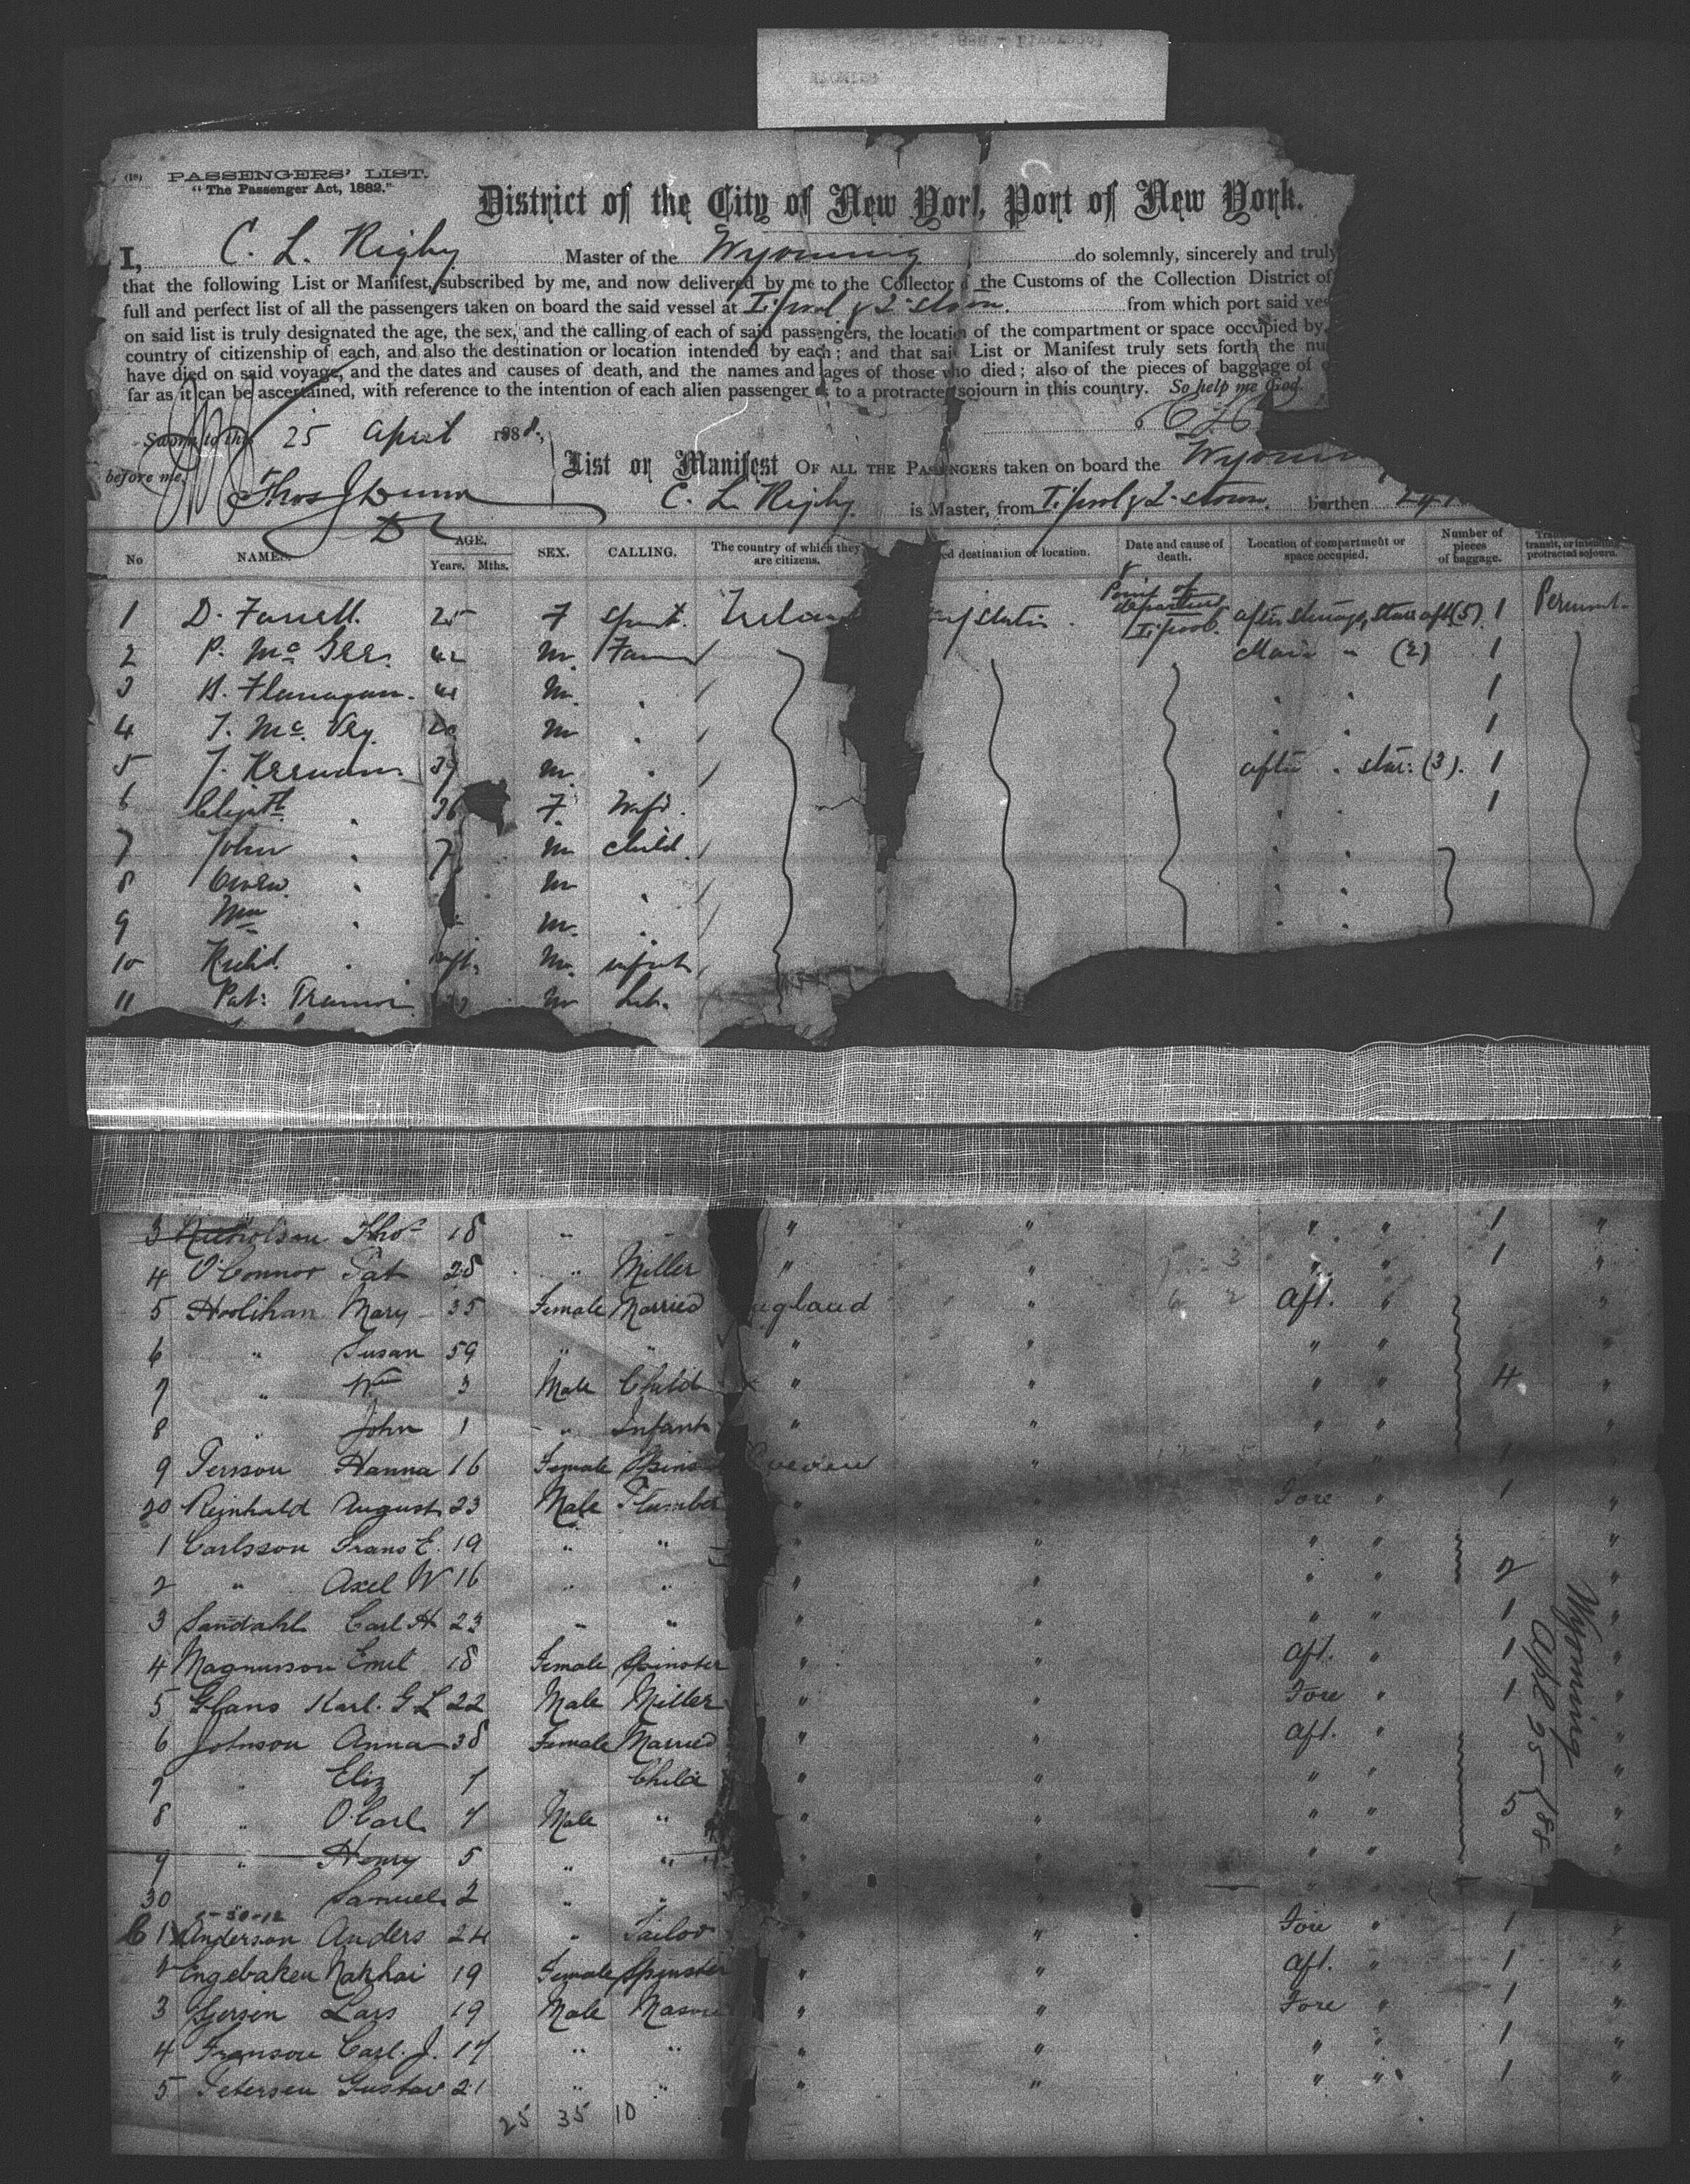 (18) PASSENGERS' LIST.
"The Passenger Act, 1882."
District of the City of New York, Port of New York.
I, C. L. Rigby Master of the Wyoming do solemnly, sincerely and truly
that the following List or Manifest, subscribed by me, and now delivered by me to the Collector of the Customs of the Collection District of
full and perfect list of all the passengers taken on board the said vessel at L'pool & Q-stown. from which port said ves
on said list is truly designated the age, the sex, and the calling of each of said passengers, the location of the compartment or space occupied by
country of citizenship of each, and also the destination or location intended by each; and that said List or Manifest truly sets forth the nu
have died on said voyage, and the dates and causes of death, and the names and ages of those who died; also of the pieces of baggage of
far as it can be ascertained, with reference to the intention of each alien passenger as to a protracted sojourn in this country. So help me God.
Sworn to this 25 April 1888, C L
before me, Thos J Dunn
List or Manifest OF ALL THE PASSENGERS taken on board the Wyomin
C. L. Rigby is Master, from L'pool & Q-stown. burthen
No NAMES. AGE. Years. Mths. SEX. CALLING. The country of which they are citizens. ed destination or location. Date and cause of death. Location of compartment or space occupied. Number of pieces of baggage. transit, or intending protracted sojourn.
1 D. Farrell. 25 F Spinst. Irelan Point of departure L'pool. after steerage, stair aft (5) 1 Permnt.
2 P. McGee. 42 M. Farm Main " (2) 1
3 B. Flanagan. 41 M. " " " 1
4 T. McVey. 20 M " " " 1
5 J. Keenan 39 M. " after " star: (3). 1
6 Elizth " 36 F. Wife. " " 1
7 John " 7 M child. " "
8 Owen " M " " "
9 Wm " M. " " "
10 Richd. " M. infant
11 Pat: M Lab.
3 Nicholson Thos 18 " " " " " 1 "
4 O'Connor Pat 28 " Miller " " " " 1 "
5 Hoolihan Mary 35 Female Married ngland " Aft. " "
6 " Susan 59 " " " " " " "
7 " Wm 3 Male Child " " " " 4 "
8 " John 1 " Infant " " " " "
9 Persson Hanna 16 Female Spins weden " " " 1 "
20 Reinhald August 23 Male Plumber " " Fore " 1 "
1 Carlsson Frans E. 19 " " " " " " "
2 " Axel W 16 " " " " " " 2 "
3 Sandahl Carl H 23 " " " " " " 1 "
4 Magnusson Emel 18 Female Spinster " " Aft. " 1 "
5 Glans Karl. G L 22 Male Miller " " Fore " 1 "
6 Johnson Anna 38 Female Married " " Aft. " "
7 " Eliz 7 Child " " " " "
8 " O. Carl 7 Male " " " " " 5 "
9 " Henry 5 " " " " " " "
30 Samuel 2 " " " " " "
1 Anderson Anders 24 " Tailor " " Fore " 1 "
Engebaken Nakhai 19 Female Spinster " " Aft. " 1 "
3 Lars 19 Male Mason " " Fore " 1 "
4 Franson Carl. J. 17 " " " " " " 1 "
5 Petersen Gustav 21 " " " " " " 1 "
25 35 10
Wyoming
Apl 25 /88